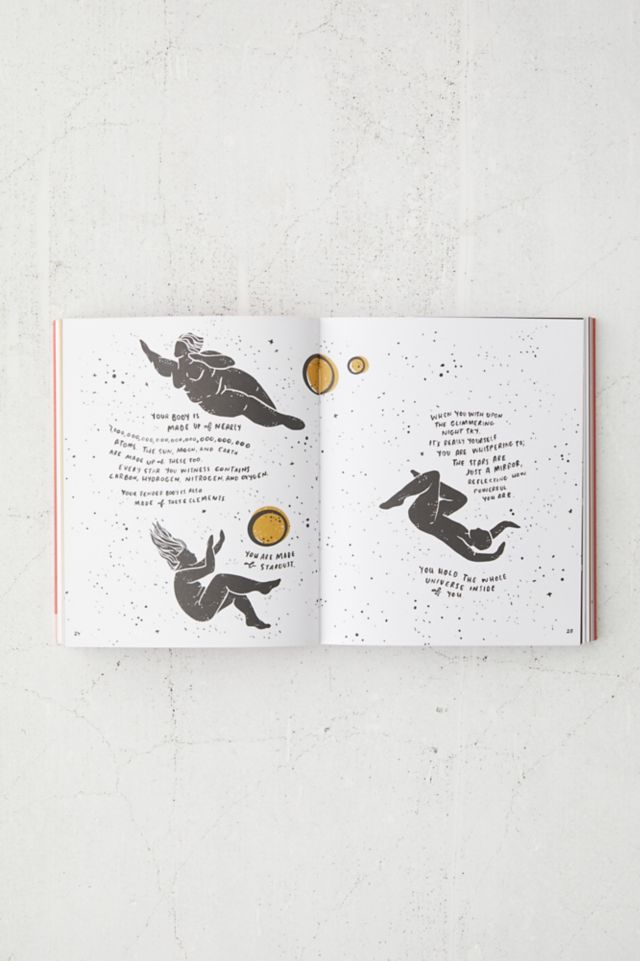 YOUR BODY IS
MADE UP of NEARLY
7,000,000,000,000,000,000,000,000,000
ATOMS. THE SUN, MOON, AND EARTH
ARE MADE UP of THESE TOO.
EVERY STAR YOU WITNESS CONTAINS
CARBON, HYDROGEN, NITROGEN, AND OXYGEN.
YOUR TENDER BODY IS ALSO
MADE of THESE ELEMENTS
YOU ARE MADE
of STARDUST.
24
WHEN YOU WISH UPON
THE GLIMMERING
NIGHT SKY,
IT'S REALLY YOURSELF
YOU ARE WHISPERING TO;
THE STARS ARE
JUST A MIRROR,
REFLECTING HOW
POWERFUL
YOU ARE.
YOU HOLD THE WHOLE
UNIVERSE INSIDE
of YOU
25